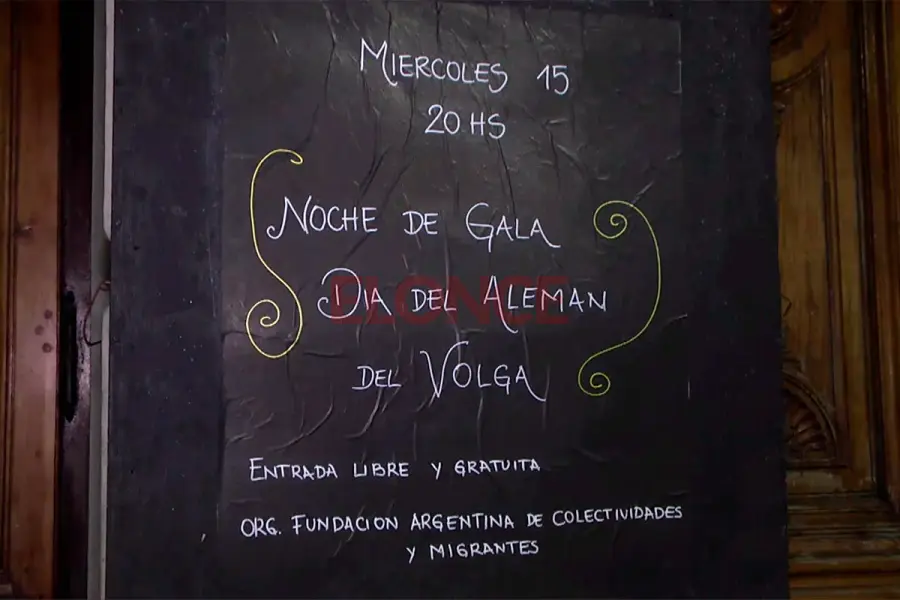 MIERCOLES 15
20 HS
NOCHE DE GALA
DIA DEL ALEMAN
ELONCE
DEL VOLGA
ENTRADA LIBRE Y GRATUITA
ORG. FUNDACION ARGENTINA DE COLECTIVIDADES
Y MIGRANTES